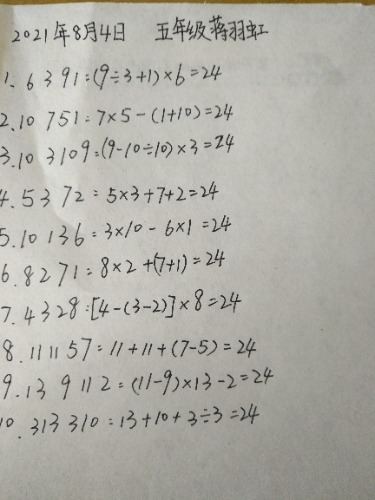 2021年8月4日 五年级蒋羽虹
1. 6 3 9 1:(9÷3+1)×6=24
2. 10 7 5 1:7×5-(1+10)=24
3. 10 3 10 9:(9-10÷10)×3=24
4. 5 3 7 2:5×3+7+2=24
5. 10 1 3 6:3×10-6×1=24
6. 8 2 7 1:8×2+(7+1)=24
7. 4 3 2 8:[4-(3-2)]×8=24
8. 11 11 5 7:11+11+(7-5)=24
9. 13 9 11 2:(11-9)×13-2=24
10. 3 13 3 10:13+10+3÷3=24